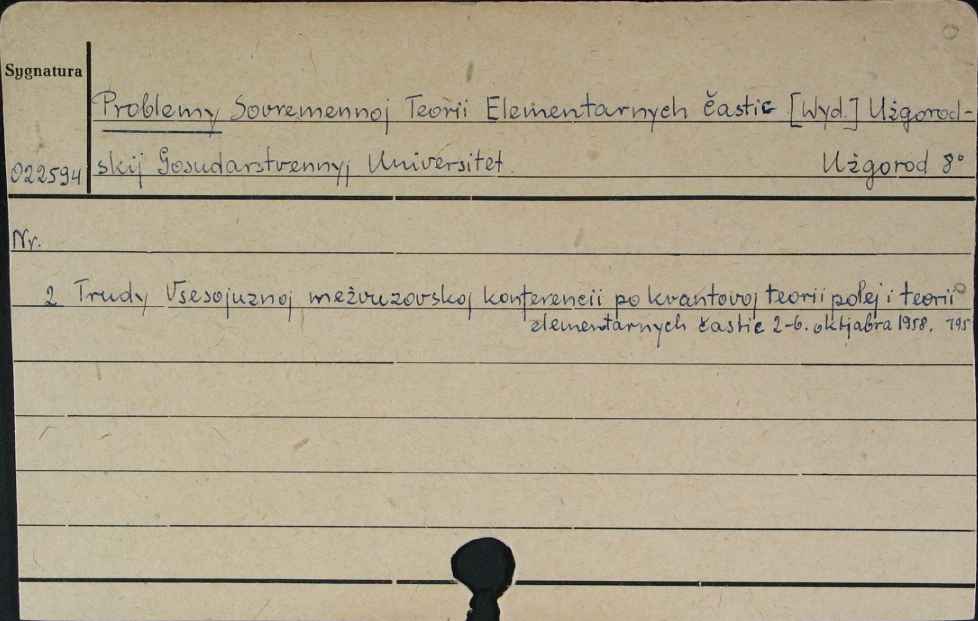 Sygnatura
Problemy Sovremennoj Teorii Elementarnych častic [Wyd.] Użgorod-
022594 skij Gosudarstvennyj Universitet. Użgorod 8°
Nr.
2 Trudy Vsesojuznoj mežvuzovskoj konferencii po kvantovoj teorii polej i teorii
elementarnych častic 2-6. oktjabra 1958. 195